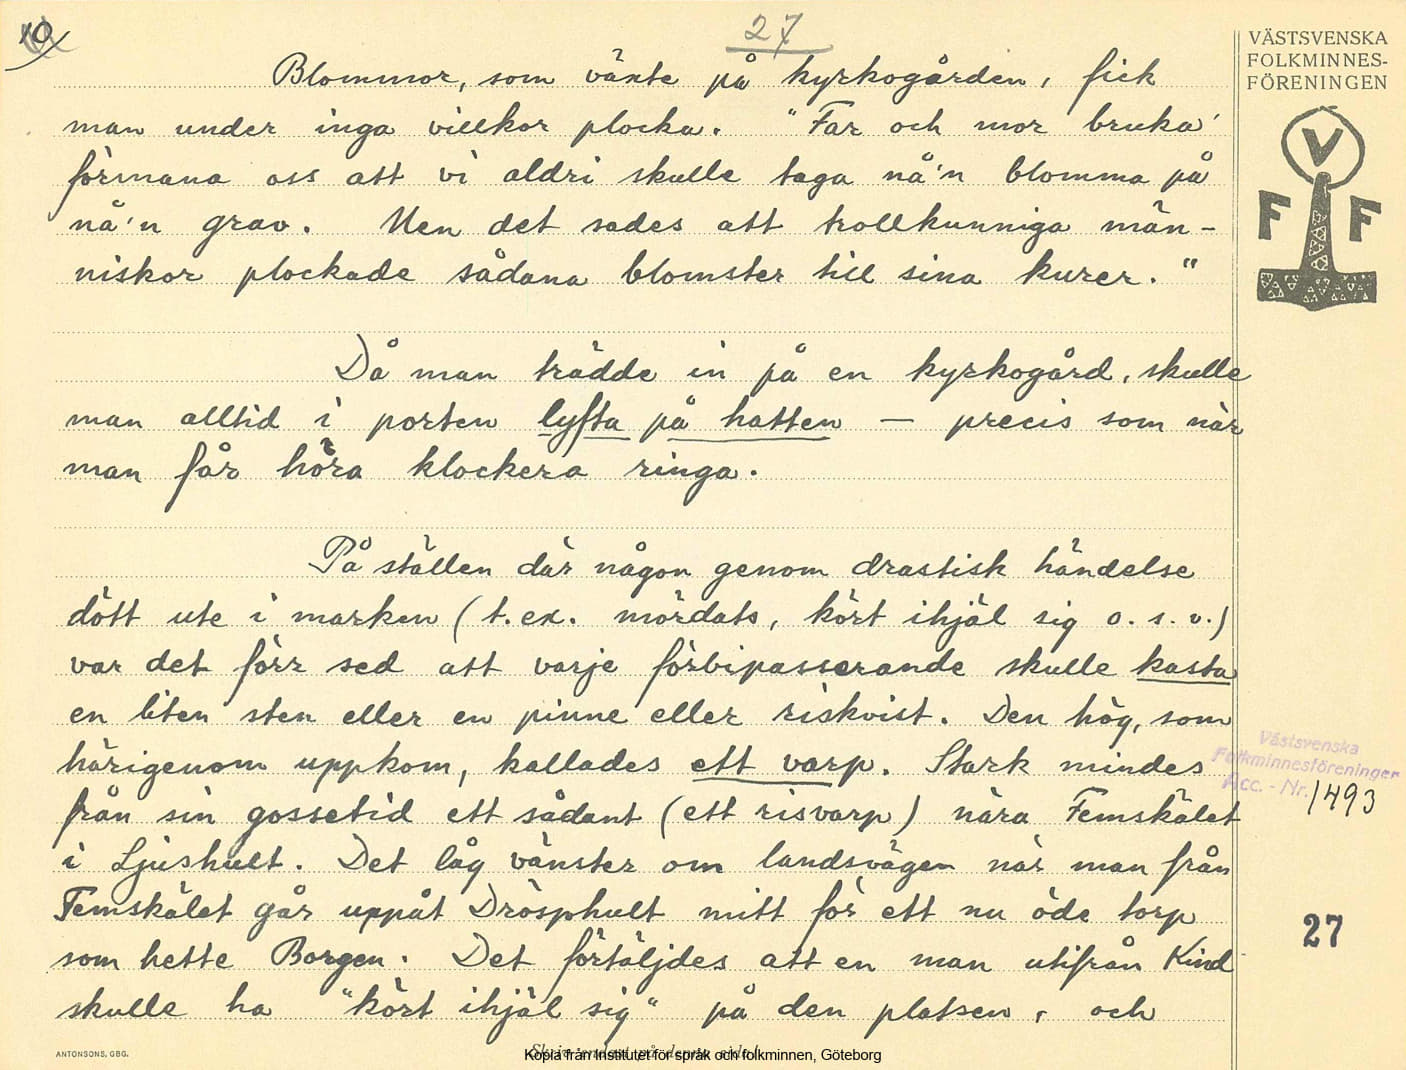 10
27
VÄSTSVENSKA
FOLKMINNES-
FÖRENINGEN
V
F F
Blommor, som växte på kyrkogården, fick
man under inga villkor plocka. "Far och mor bruka'
förmana oss att vi aldri skulle taga nå'n blomma på
nå'n grav. Men det sades att trollkunniga män-
niskor plockade sådana blomster till sina kurer."
Då man trädde in på en kyrkogård, skulle
man alltid i porten lyfta på hatten — precis som när
man får höra klockera ringa.
På ställen där någon genom drastisk händelse
dött ute i marken (t.ex. mördats, kört ihjäl sig o.s.v.)
var det förr sed att varje förbipasserande skulle kasta
en liten sten eller en pinne eller riskvist. Den hög, som
härigenom uppkom, kallades ett varp. Stark mindes
från sin gossetid ett sådant (ett risvarp) nära Femskälet
i Ljushult. Det låg vänster om landsvägen när man från
Femskälet går uppåt Drösphult mitt för ett nu öde torp
som hette Borgen. Det förtäljdes att en man utifrån Kind
skulle ha "kört ihjäl sig" på den platsen, och
Västsvenska
Folkminnesföreningen
Acc. - Nr. 1493
27
ANTONSONS, GBG.
Kopia från Institutet för språk och folkminnen, Göteborg